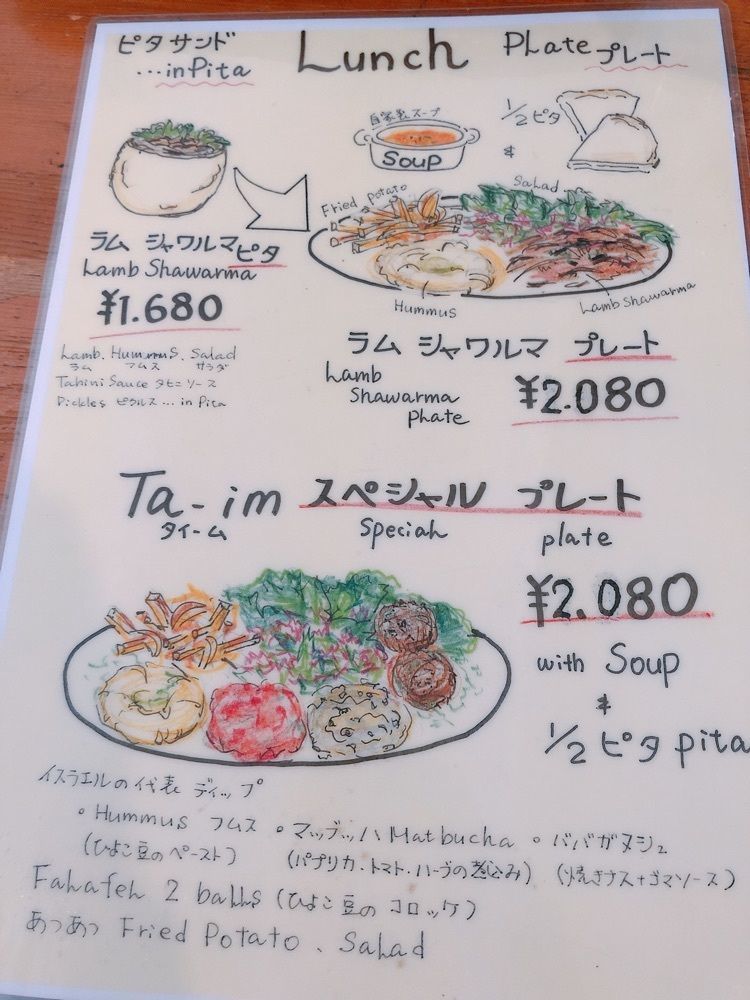 ピタサンド
...in Pita
Lunch
Plate プレート
自家製スープ
Soup
&
1/2 ピタ
Fried Potato
Salad
Hummus
Lamb Shawarma
ラム シャワルマピタ
Lamb Shawarma
¥1.680
Lamb. Hummus. Salad
ラム フムス サラダ
Tahini Sauce タヒニソース
Pickles ピクルス ... in Pita
ラム シャワルマ プレート
Lamb
Shawarma
plate
¥2.080
Ta-im スペシャル プレート
タイーム Special plate
¥2.080
with Soup
&
1/2 ピタ pita
イスラエルの代表 ディップ
・Hummus フムス ・マッブッハ Matbucha ・ババガヌシュ
(ひよこ豆のペースト) (パプリカ・トマト・ハーブの煮込み) (焼きナス+ゴマソース)
Falafel 2 balls (ひよこ豆の コロッケ)
あつあつ Fried Potato 、Salad